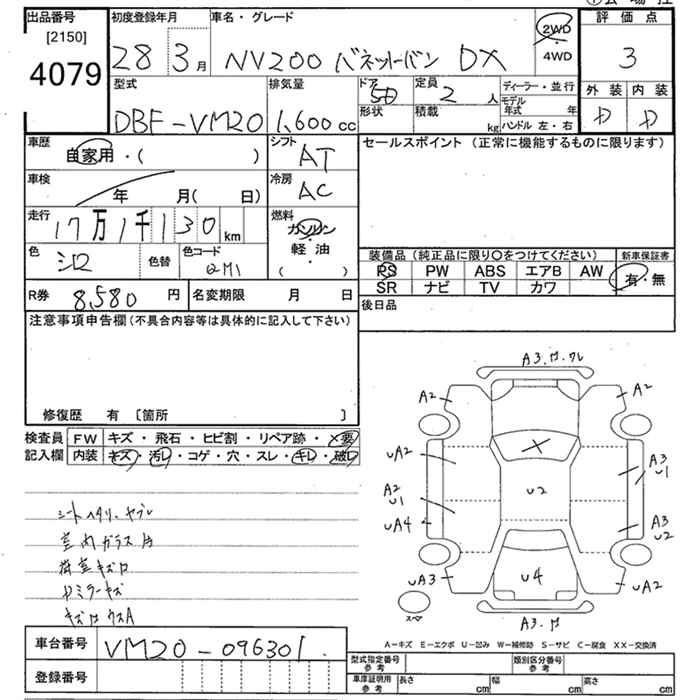 出品番号 初度登録年月 車名・グレード 2WD・4WD 評価点
[2150] 4079 28 3月 NV200 バネットバン DX 3
型式 排気量 ドア 定員 ディーラー・並行 外装 内装
DBF-VM20 1,600cc 5D 2人 モデル年式 年
形状 積載 kg ハンドル 左・右
車歴 自家用・( ) シフト AT セールスポイント (正常に機能するものに限ります)
車検 年 月( 日) 冷房 AC
走行 17万1千130km 燃料 ガソリン・軽油 ( )
色 シロ 色替 色コード QM1
装備品 (純正品に限り○をつけてください) 新車保証書
PS PW ABS エアB AW 有・無
SR ナビ TV カワ
R券 8,580円 名変期限 月 日 後日品
注意事項申告欄(不具合内容等は具体的に記入して下さい)
修復歴 有 [箇所 ]
検査員 FW キズ・飛石・ヒビ割・リペア跡・X要
記入欄 内装 キズ・汚レ・コゲ・穴・スレ・キレ・破レ
シートヘタリ、ヤブレ
室内ガラスA
ミラーキズ
A3.ガ.ワレ
A2 A2
UA2 A3 U1
A2 U1 U2
UA4 A3 U2
UA3 U4 UA2
スペア A3.ガ
A-キズ E-エクボ U-凹み W-補修跡 S-サビ C-腐食 XX-交換済
車台番号 VM20-096301
登録番号
型式指定番号 参考 類別区分番号 参考
車庫証明用 参考 長さ cm 幅 cm 高さ cm